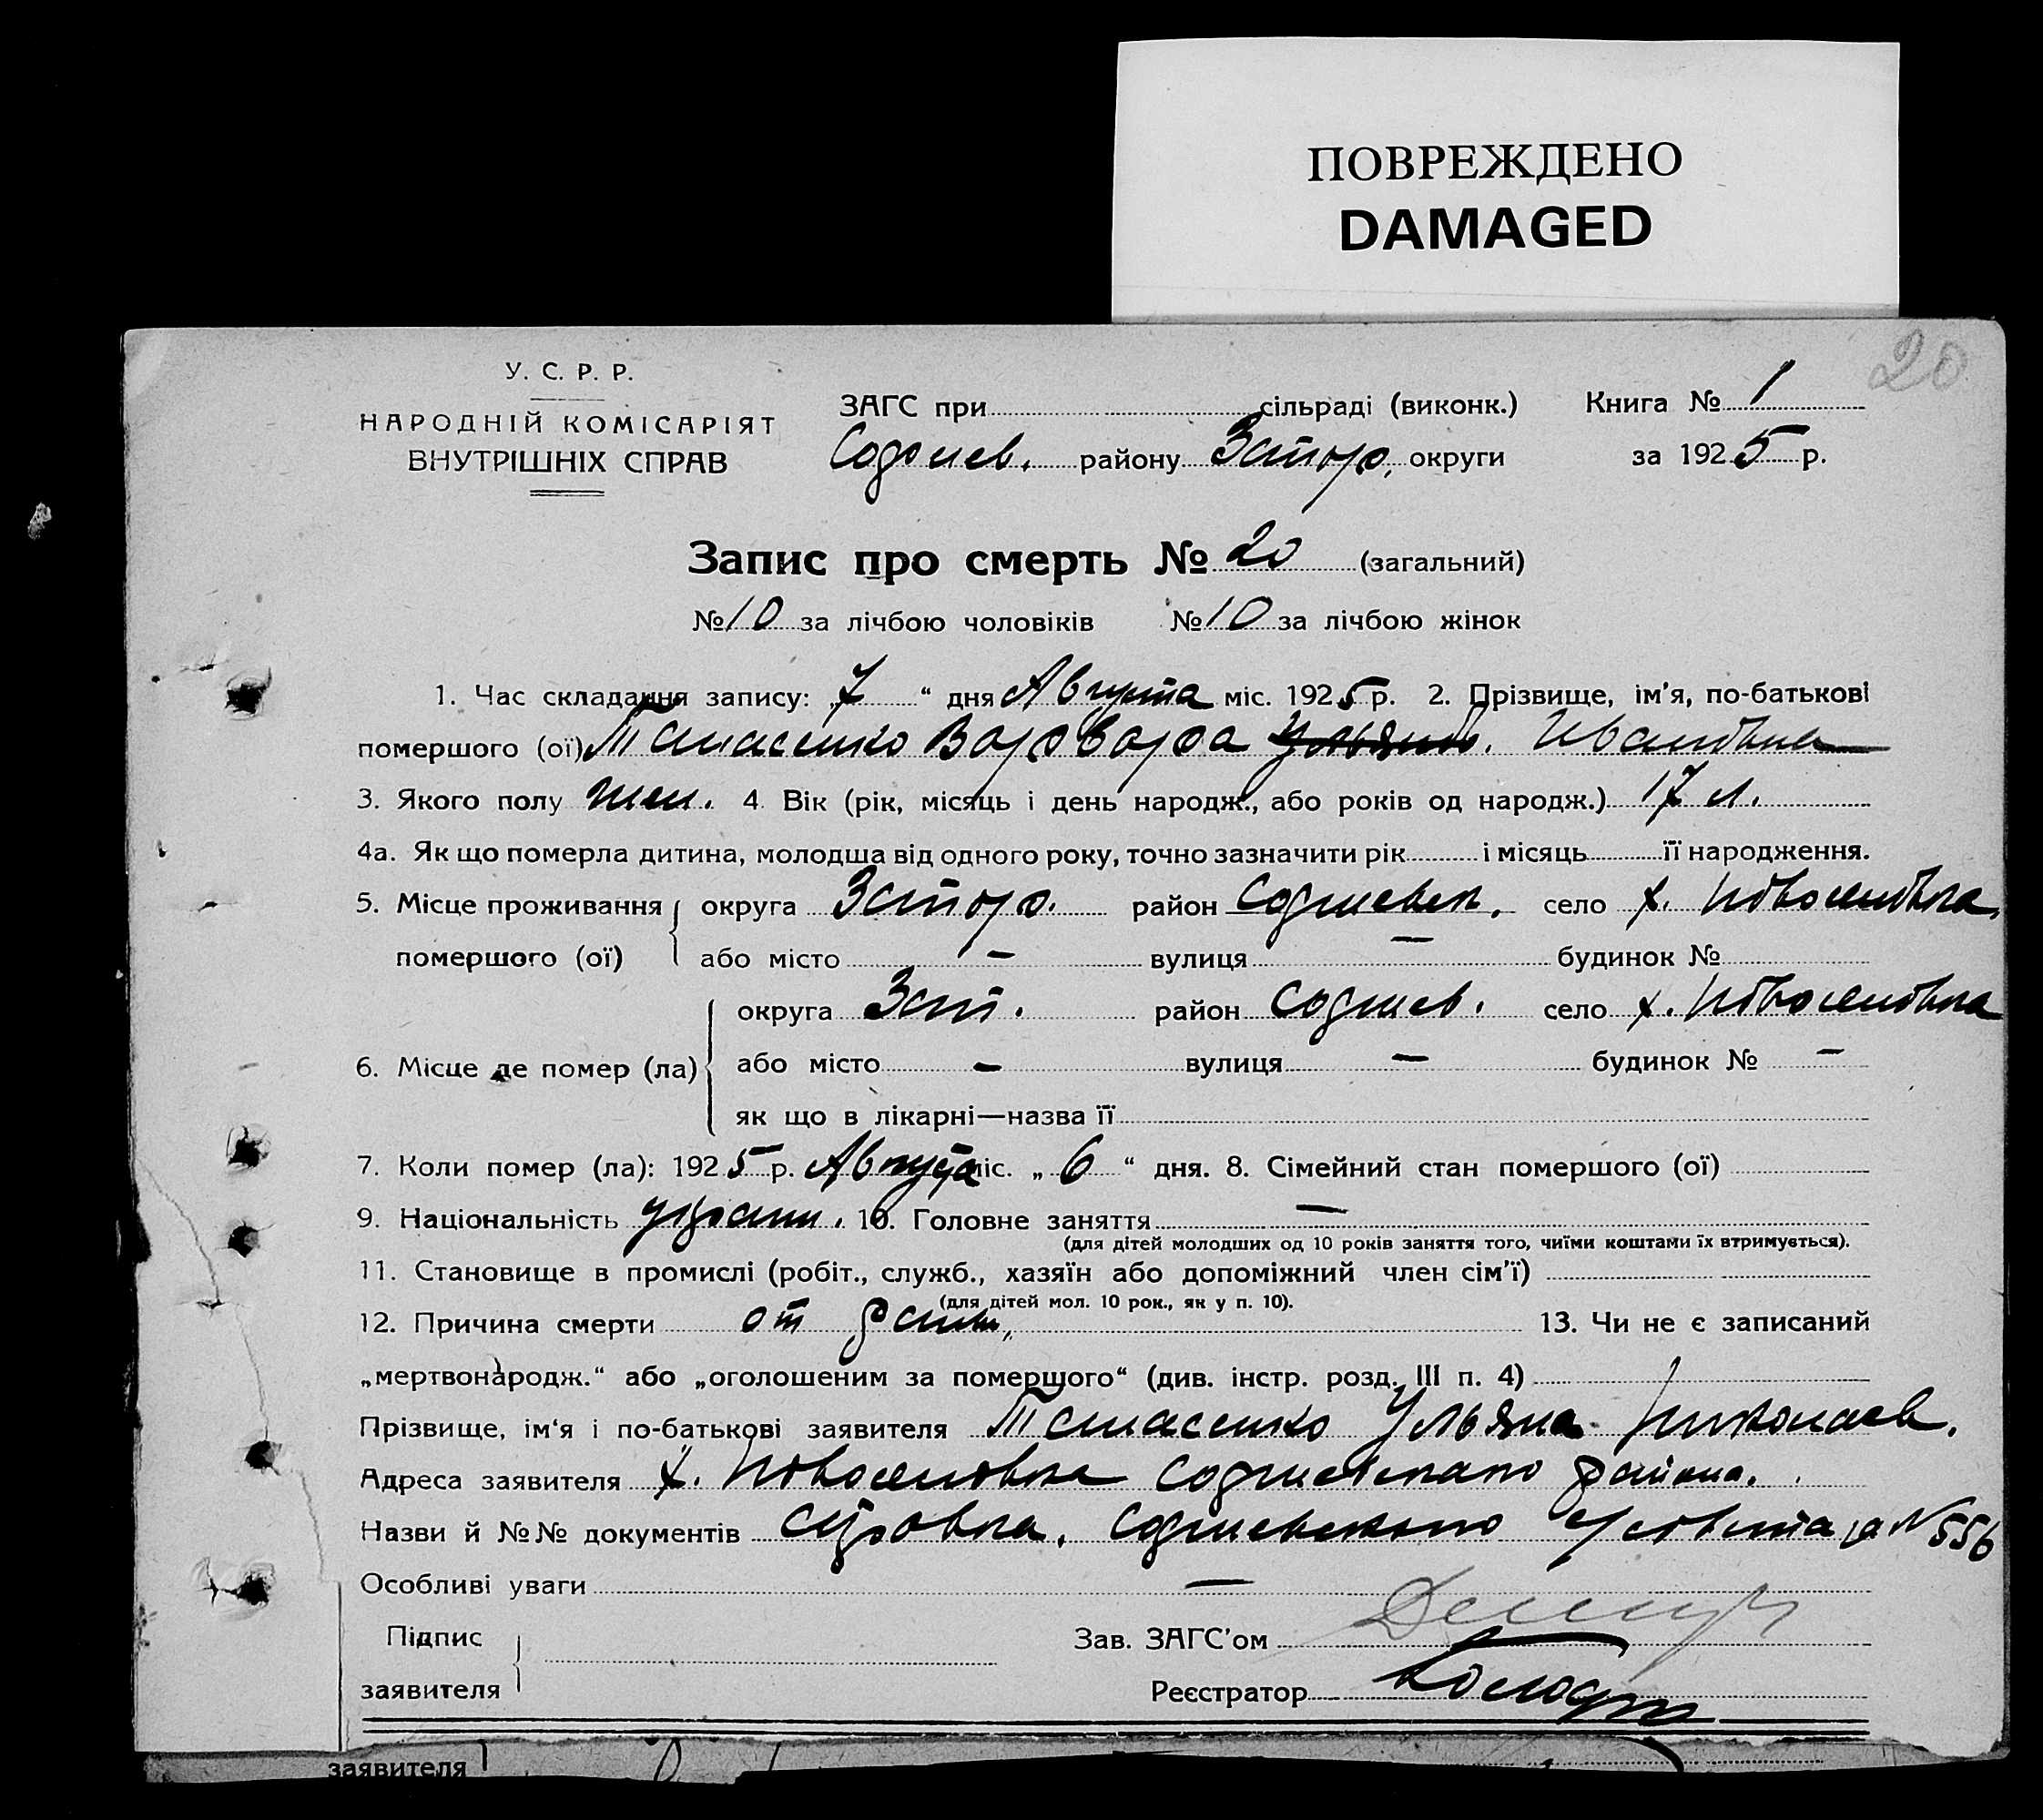 ПОВРЕЖДЕНО
DAMAGED
20
У. С. Р. Р.
НАРОДНІЙ КОМІСАРІЯТ
ВНУТРІШНІХ СПРАВ
ЗАГС при сільраді (виконк.)
Софиев. району Запор. округи
Книга № 1
за 1925 р.
Запис про смерть № 20 (загальний)
№ 10 за лічбою чоловіків № 10 за лічбою жінок
1. Час складання запису: „7“ дня Августа міс. 1925 р. 2. Прізвище, ім’я, по-батькові
помершого (ої) Панасенко Варвара Ивановна
3. Якого полу жен. 4. Вік (рік, місяць і день народж., або років од народж.) 17 л.
4а. Як що померла дитина, молодша від одного року, точно зазначити рік і місяць її народження.
5. Місце проживання помершого (ої) округа Запор. район Софиевск. село х. Новоселовка
або місто – вулиця – будинок №
6. Місце де помер (ла) округа Зап. район Софиев. село х. Новоселовка
або місто – вулиця – будинок № –
як що в лікарні—назва її
7. Коли помер (ла): 1925 р. Августа міс. „6“ дня. 8. Сімейний стан помершого (ої)
9. Національність украин. 10. Головне заняття –
(для дітей молодших од 10 років заняття того, чиїми коштами їх втримується).
11. Становище в промислі (робіт., служб., хазяїн або допоміжний член сім’ї)
(для дітей мол. 10 рок., як у п. 10).
12. Причина смерти от раны 13. Чи не є записаний
„мертвонародж.“ або „оголошеним за помершого“ (див. інстр. розд. III п. 4)
Прізвище, ім‘я і по-батькові заявителя Панасенко Ульяна Николаев.
Адреса заявителя х. Новоселовка Софиевского района.
Назви й №№ документів справка. Софиевского за № 556
Особливі уваги –
Підпис
заявителя
Зав. ЗАГС’ом
Реєстратор
заявителя